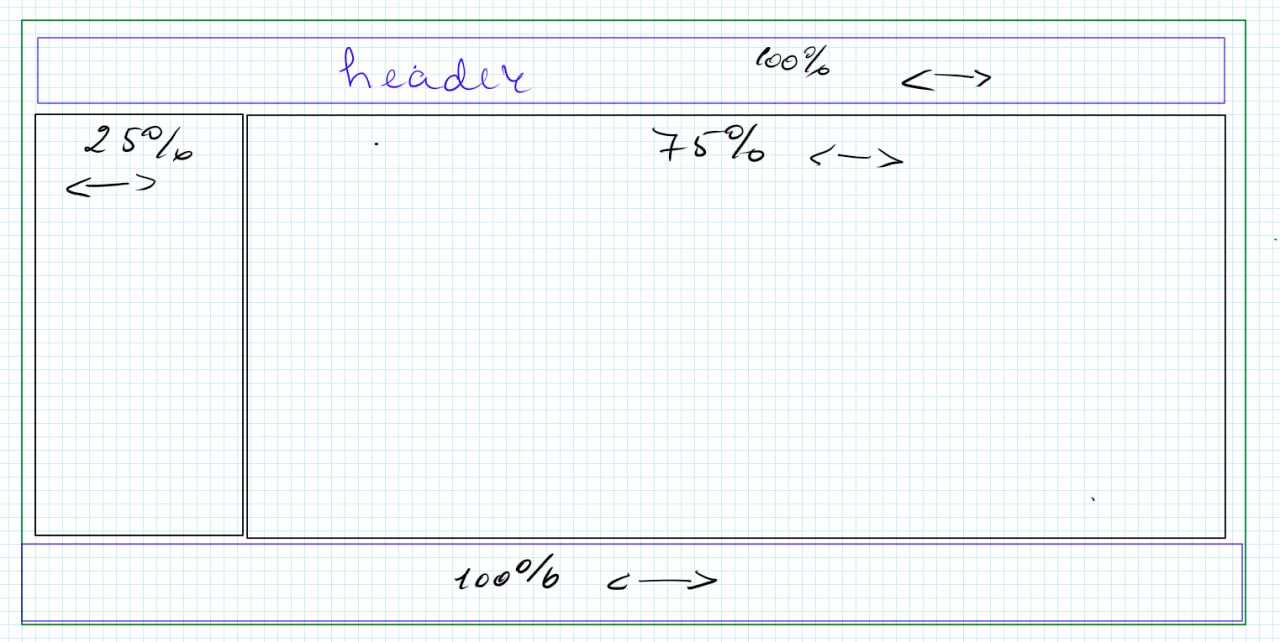 header 100% <—>
25% 75% <—>
<—>
100% <—>